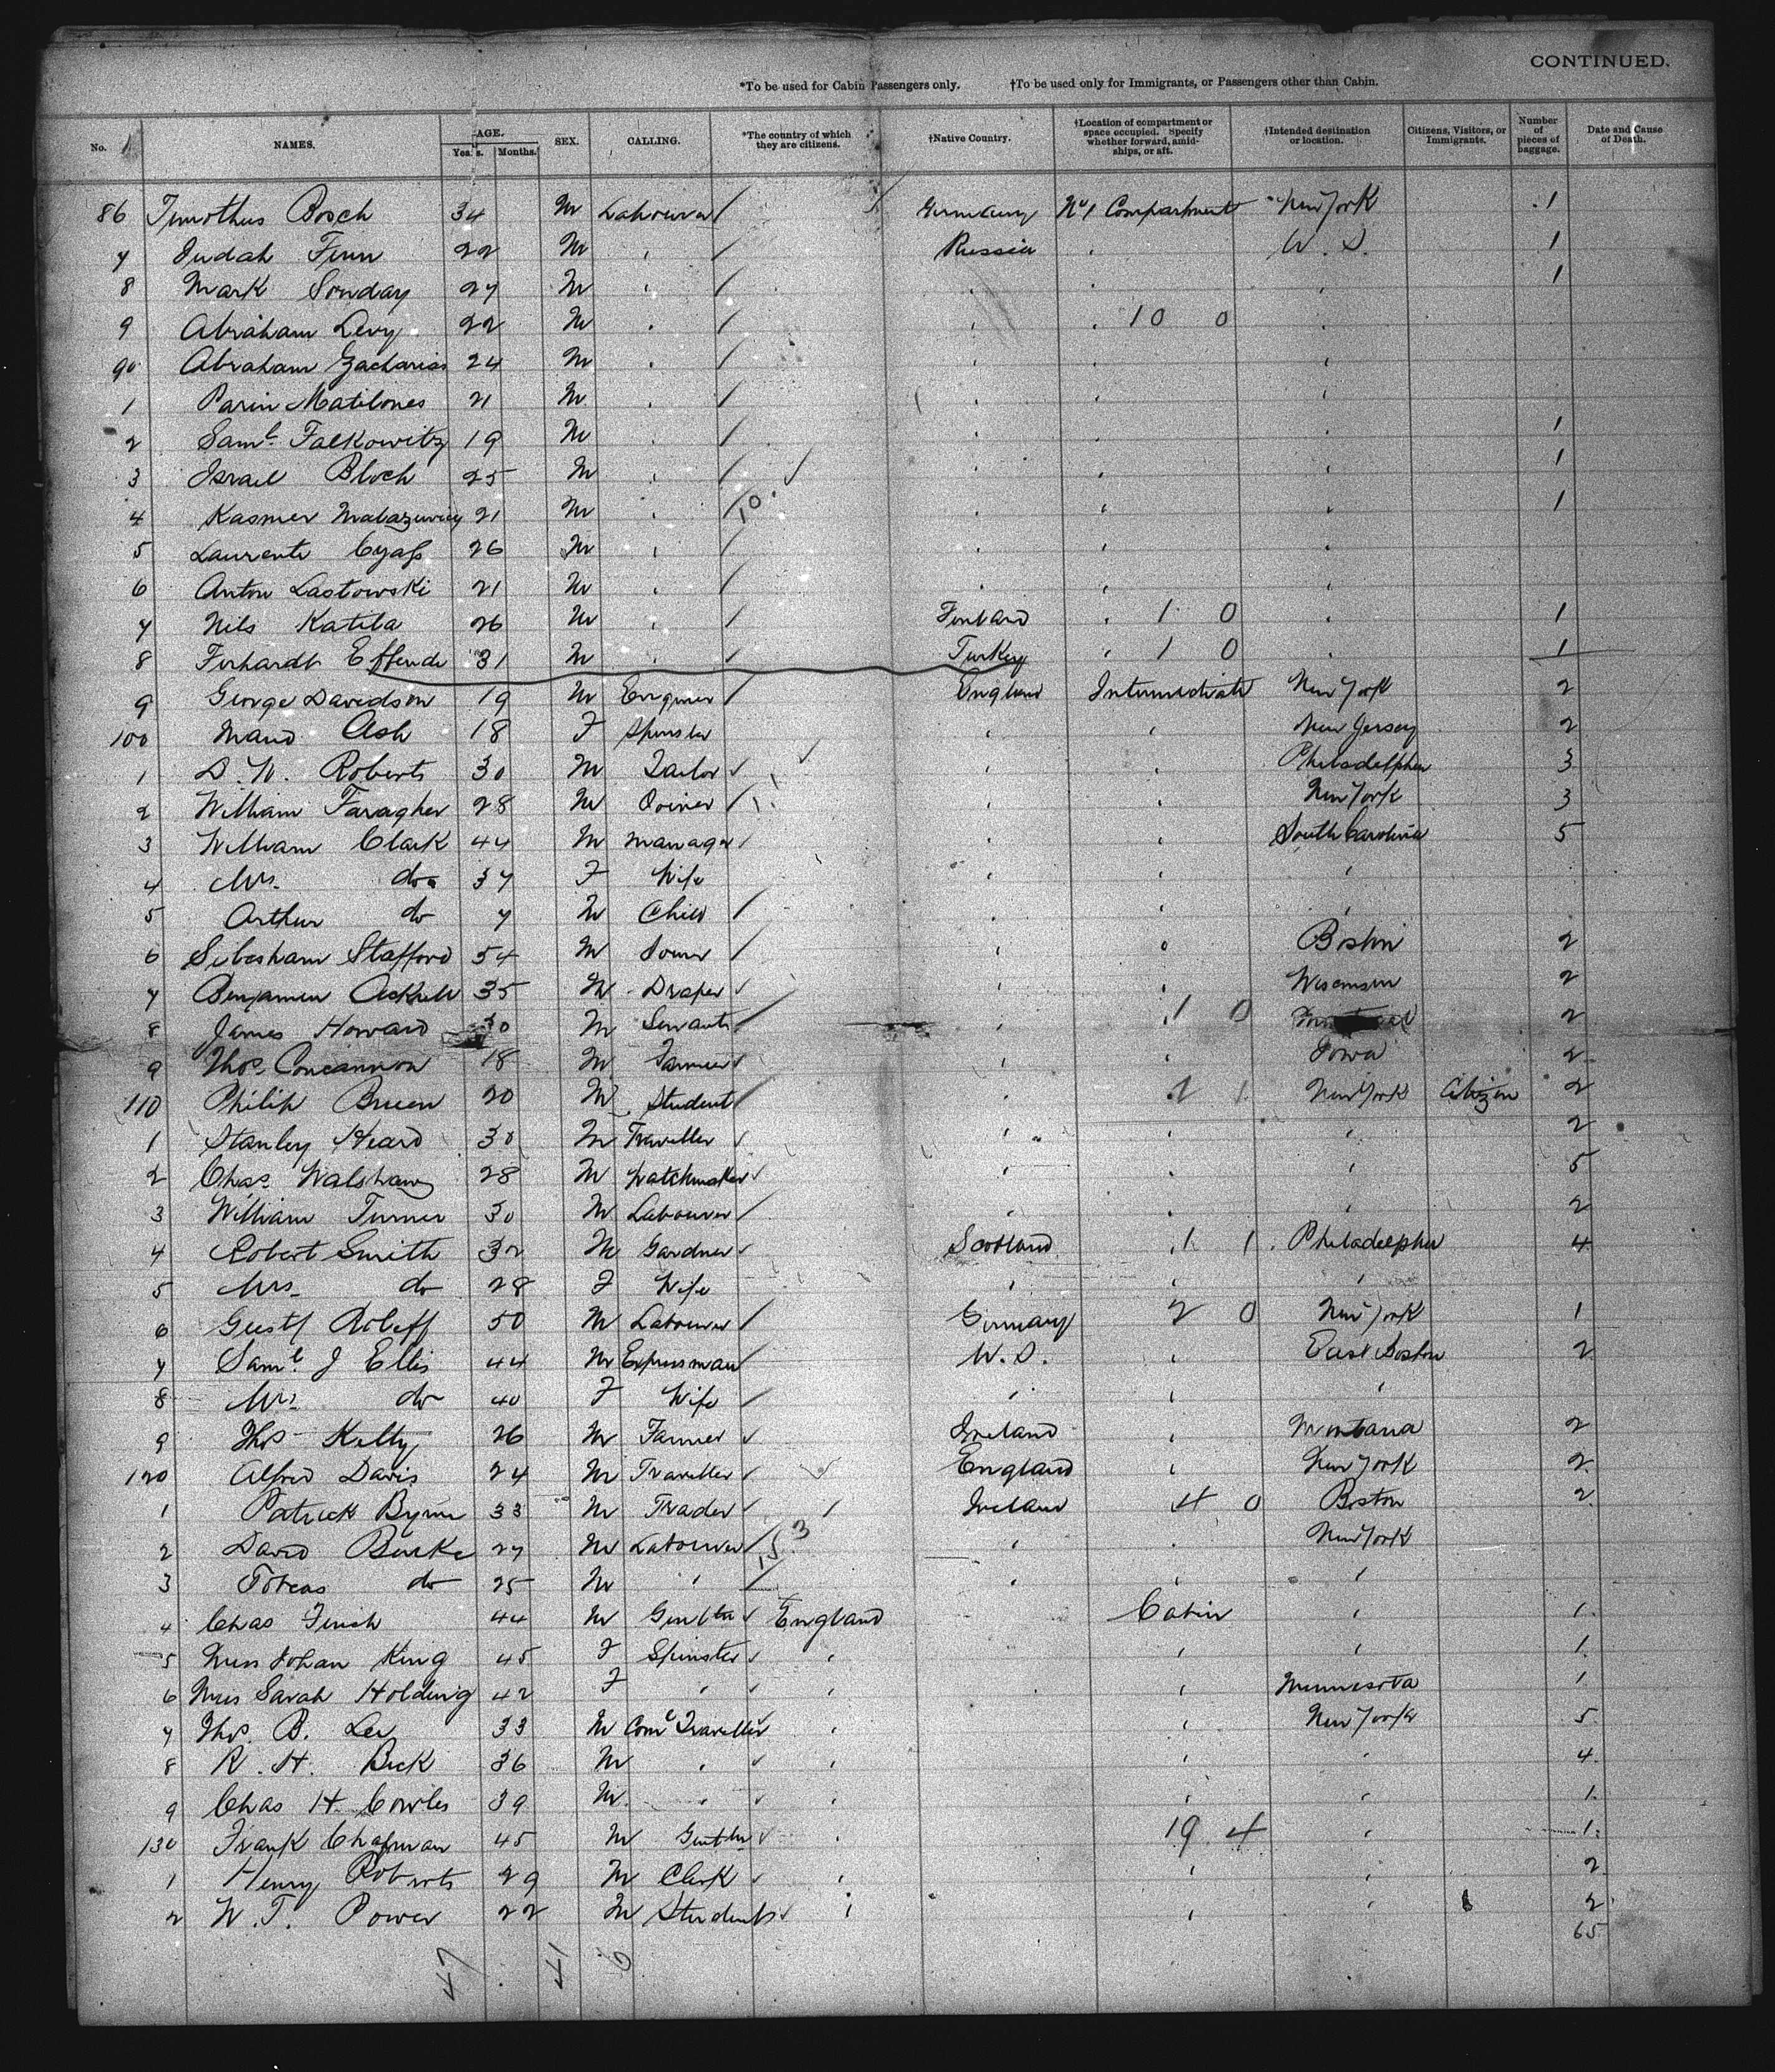 CONTINUED.
*To be used for Cabin Passengers only. †To be used only for Immigrants, or Passengers other than Cabin.
No. NAMES. AGE. Years. Months. SEX. CALLING. *The country of which they are citizens. †Native Country. †Location of compartment or space occupied. Specify whether forward, amidships, or aft. †Intended destination or location. Citizens, Visitors, or Immigrants. Number of pieces of baggage. Date and Cause of Death.
86 Timotheus Bosch 34 M Labourer Germany No 1 Compartment New York 1
7 Judah Finn 22 M " Russia " U. S. 1
8 Mark Sonday 27 M " " " " 1
9 Abraham Levy 22 M " " " 10 0 "
90 Abraham Zacharias 24 M " " "
1 Parin Matilones 21 M " " " "
2 Saml. Falkowitz 19 M " " " " 1
3 Israel Bloch 25 M " " " " 1
4 Kasmer 21 M " 10 " " " 1
5 Laurente 26 M " " " "
6 Anton Lastowski 21 M " " " "
7 Nils Katila 26 M " Finland " 1 0 " 1
8 Ferhardt Effendi 31 M " Turkey " 1 0 " 1
9 George Davidson 19 M Engineer England Intermediate New York 2
100 Maud Ash 18 F Spinster " " New Jersey 2
1 D. W. Roberts 30 M Tailor " " Philadelphia 3
2 William Faragher 28 M " " New York 3
3 William Clark 44 M Manager " " South Carolina 5
4 Mrs. do 37 F Wife " " "
5 Arthur do 7 M Child " " "
6 Stafford 54 M " " Boston 2
7 Benjamin 35 M Draper " " Wisconsin 2
8 James Howard 30 M Servant " 1 0 2
9 Thos. Concannon 18 M Farmer " " Iowa 2
110 Philip Breen 20 M Student " 2 1 New York Citizen 2
1 Stanley Heard 30 M Traveller " " " 2
2 Chas. Walshaw 28 M Watchmaker " " " 5
3 William Turner 30 M Labourer " " " 2
4 Robert Smith 32 M Gardner Scotland 1 1 Philadelphia 4
5 Mrs. do 28 F Wife " " "
6 Gustf 50 M Labourer Germany 2 0 New York 1
7 Saml. J Ellis 44 M Expressman U. S. " East Boston 2
8 Mrs. do 40 F Wife " " "
9 Thos Kelly 26 M Farmer Ireland " Montana 2
120 Alfred Davis 24 M Traveller England " New York 2
1 Patrick Byrne 33 M Trader Ireland 4 0 Boston 2
2 David Burke 27 M Labourer " " New York
3 Tobias do 25 M " " " "
4 Chas Finch 44 M England Cabin " 1
5 Miss Johan King 45 F Spinster " " " 1
6 Miss Sarah Holding 42 F " " " Minnesota 1
7 Thos. B. Lee 33 M Coml Traveller " " New York 5
8 R. H. Beck 36 M " " " " 4
9 Chas H. Cowles 39 M " " " " 1
130 Frank Chapman 45 M " 19 4 " 1
1 Henry Roberts 29 M Clerk " " " 2
2 W. T. Power 22 M Student " " " 2
65
47 41 6